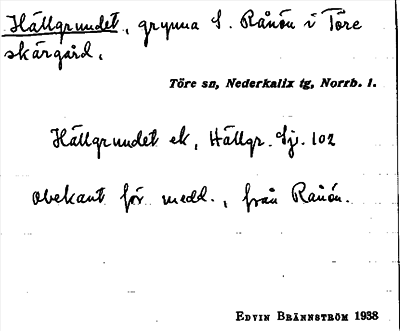 Hällgrundet, grynna S. Rånön i Töre
skärgård.
Töre sn, Nederkalix tg, Norrb. l.
Hällgrundet ek, Hällgr. Sj. 102
obekant för medd., från Rånön.
EDVIN BRÄNNSTRÖM 1938